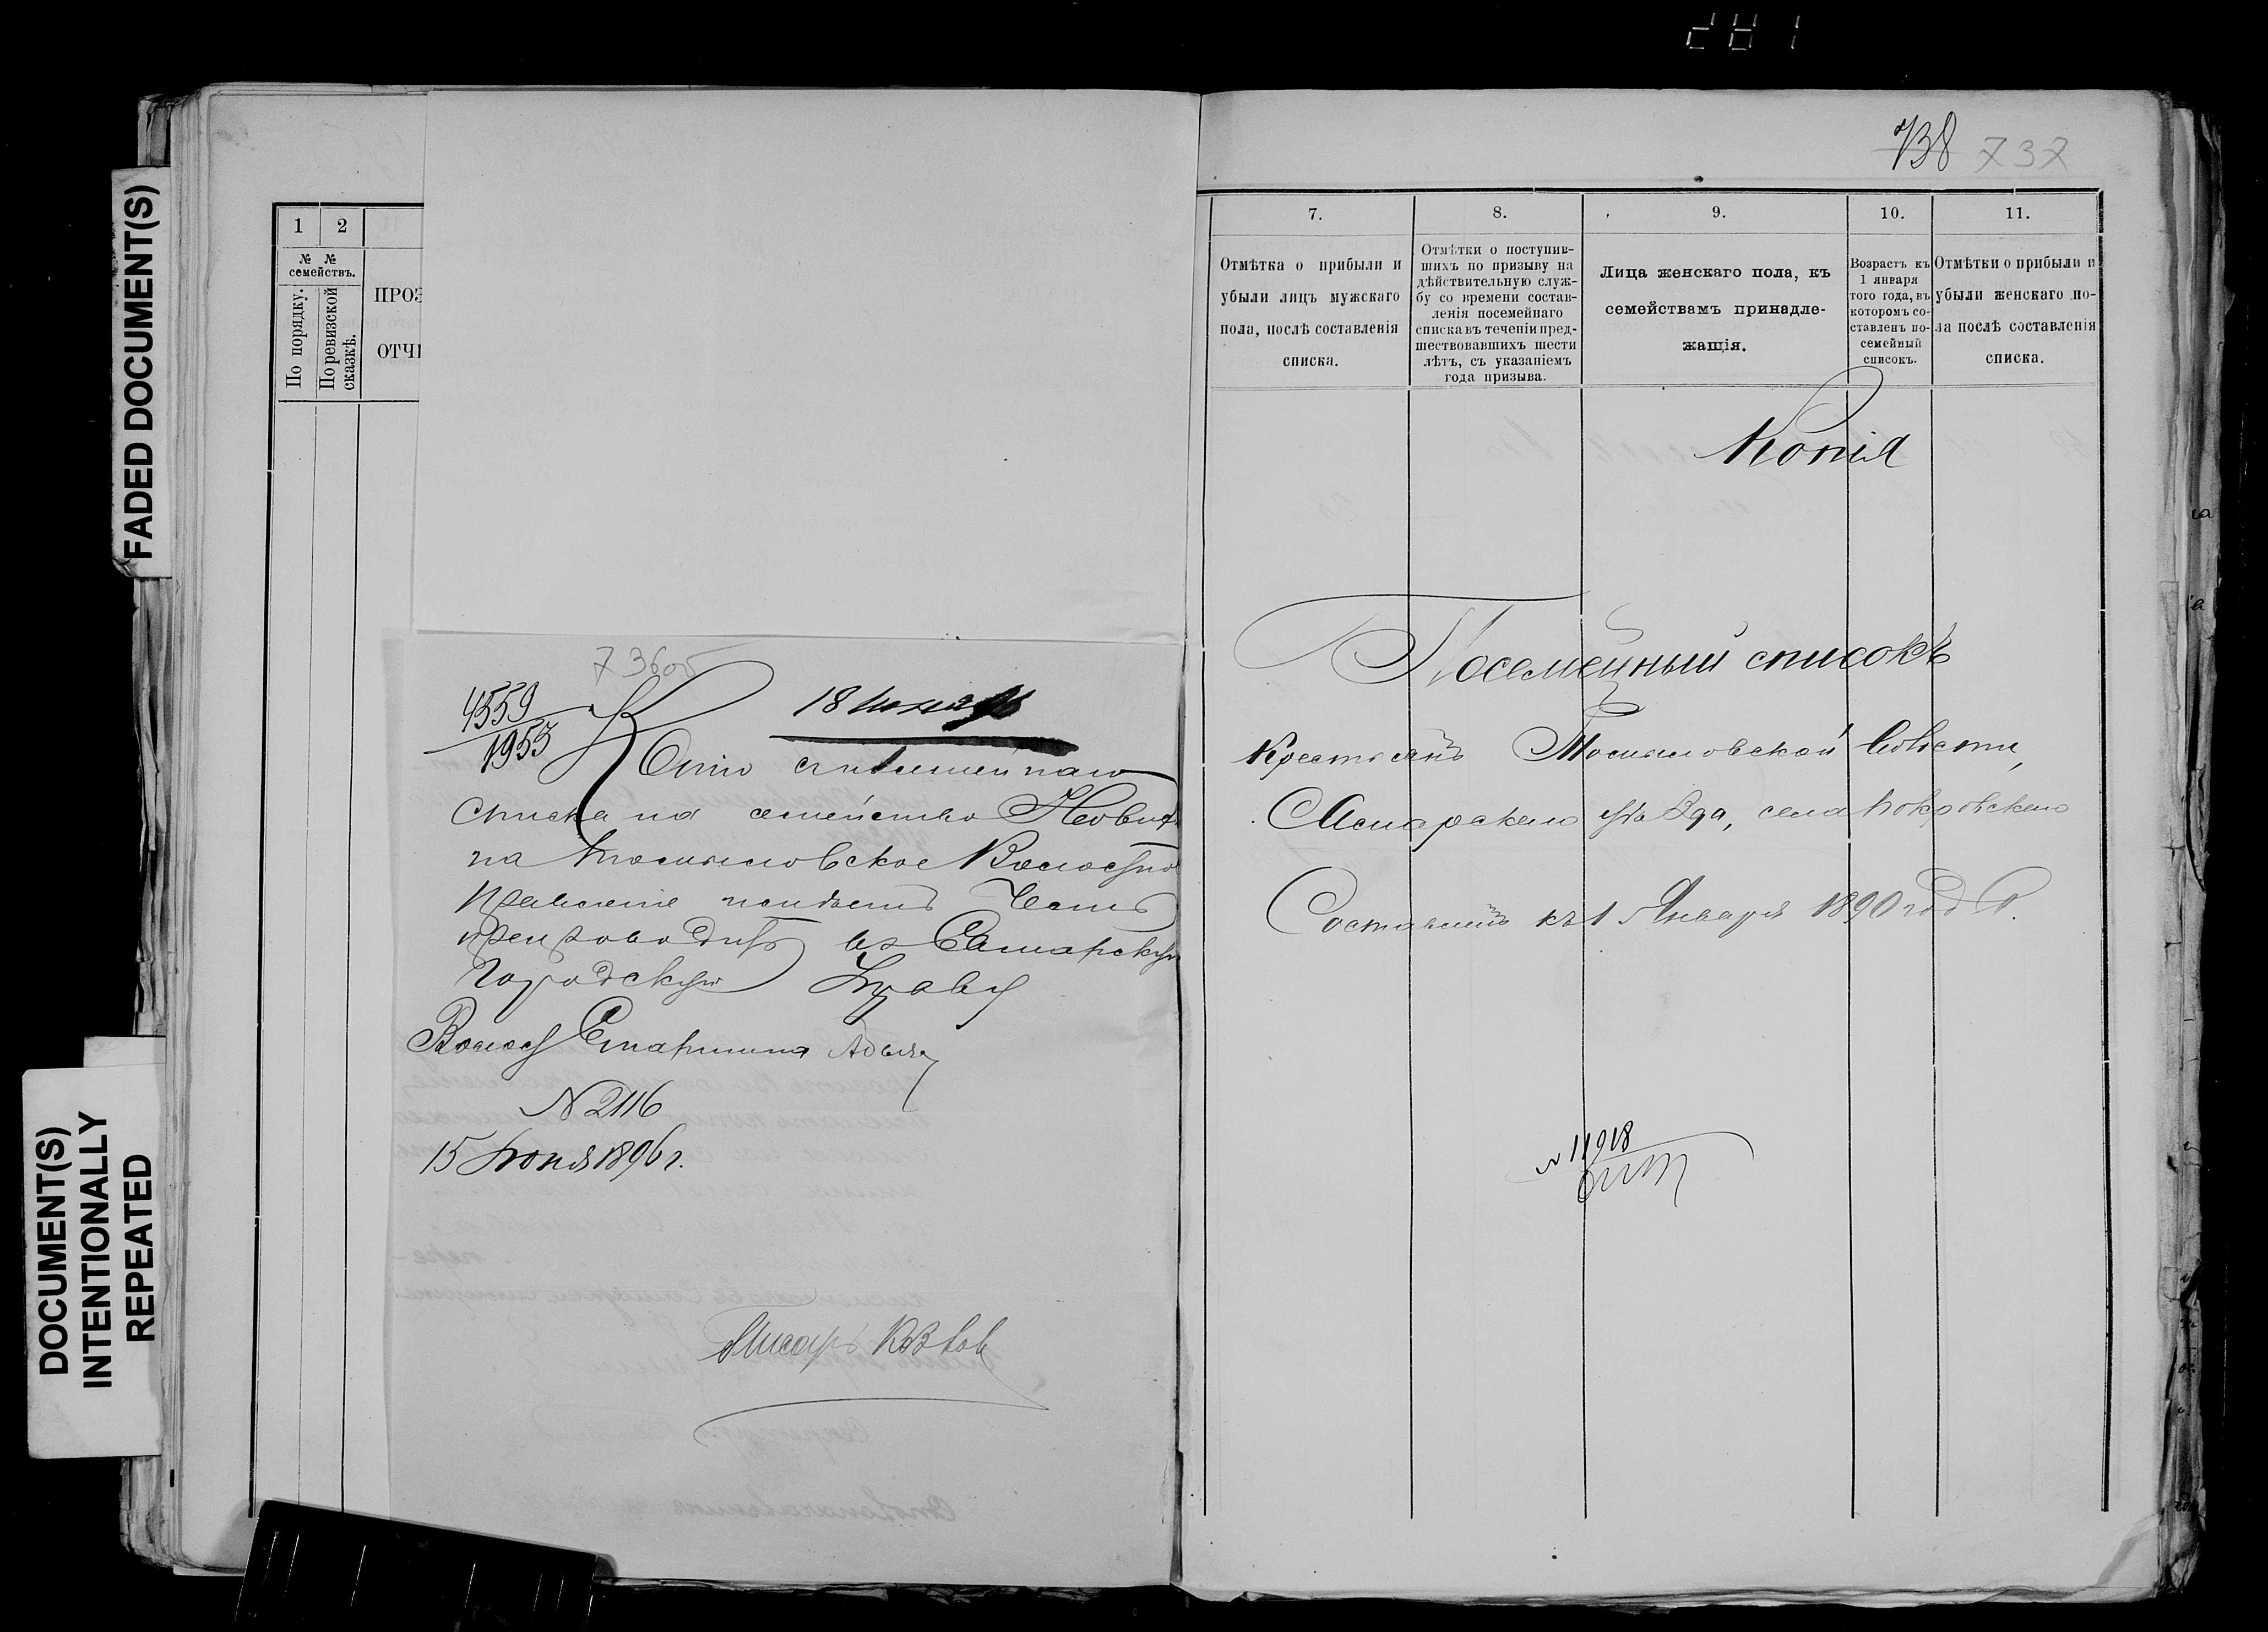 281
FADED DOCUMENT(S)
DOCUMENT(S)
INTENTIONALLY
REPEATED
1 2
№ №
семействъ.
По порядку.
По ревизской
сказкѣ.
ПРОЗ
ОТЧ
736об
4559
1953
18 Июня 96
Копiю съ посемейнаго
списка на семейство
на Томыловское Волостное
Правленiе имѣетъ честь
препроводить въ Самарскую
Городскую Управу
Волост Старшина
N 2116
15 Июня 1896 г.
Писарь
738 737
7. 8. 9. 10. 11.
Отмѣтка о прибыли и
убыли лицъ мужскаго
пола, послѣ составленія
списка.
Отмѣтки о поступив-
шихъ по призыву на
дѣйствительную служ-
бу со времени состав-
ленія посемейнаго
списка въ теченіи пред-
шествовавшихъ шести
лѣтъ, съ указаніемъ
года призыва.
Лица женскаго пола, къ
семействамъ принадле-
жащія.
Возрастъ къ
1 января
того года, въ
которомъ со-
ставленъ по-
семейный
списокъ.
Отмѣтки о прибыли и
убыли женскаго по-
ла послѣ составленія
списка.
Копiя
Посемейный списокъ
Крестьянъ Томыловской Волости,
Самарскаго уѣзда, села Покровскаго
Составленъ къ 1 Января 1890 года.
N 11918